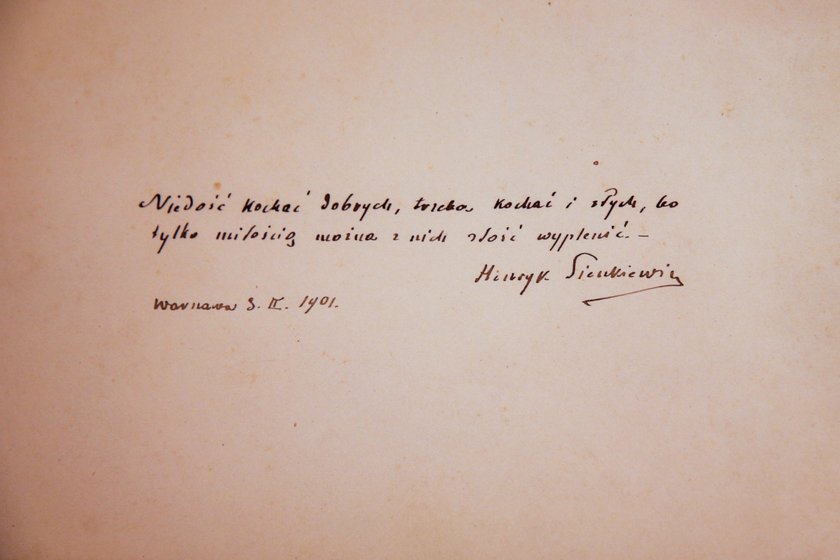 Niedość kochać dobrych, trzeba kochać i złych, bo
tylko miłością można z nich złość wyplenić. —
Henryk Sienkiewicz
Warszawa 3. IX. 1901.